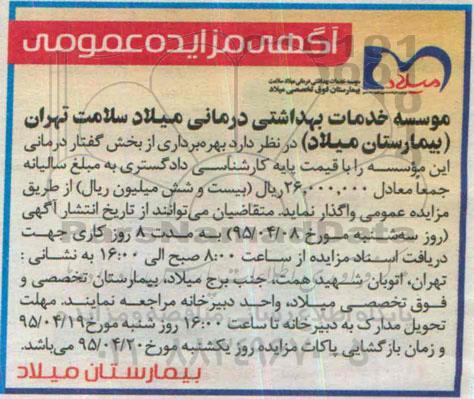 آگهی مزایده عمومی
میلاد
موسسه خدمات بهداشتی درمانی میلاد سلامت
بیمارستان فوق تخصصی میلاد
موسسه خدمات بهداشتی درمانی میلاد سلامت تهران
(بیمارستان میلاد) در نظر دارد بهره‌برداری از بخش گفتار درمانی
این مؤسسه را با قیمت پایه کارشناسی دادگستری به مبلغ سالیانه
جمعاً معادل ۲۶,۰۰۰,۰۰۰ ریال (بیست و شش میلیون ریال) از طریق
مزایده عمومی واگذار نماید. متقاضیان می‌توانند از تاریخ انتشار آگهی
(روز سه‌شنبه مورخ ۹۵/۰۴/۰۸) به مدت ۸ روز کاری جهت
دریافت اسناد مزایده از ساعت ۸:۰۰ صبح الی ۱۶:۰۰ به نشانی :
تهران، اتوبان شهید همت، جنب برج میلاد، بیمارستان تخصصی و
فوق تخصصی میلاد، واحد دبیرخانه مراجعه نمایند. مهلت
تحویل مدارک به دبیرخانه تا ساعت ۱۶:۰۰ روز شنبه مورخ ۹۵/۰۴/۱۹
و زمان بازگشایی پاکات مزایده روز یکشنبه مورخ ۹۵/۰۴/۲۰ می‌باشد.
بیمارستان میلاد